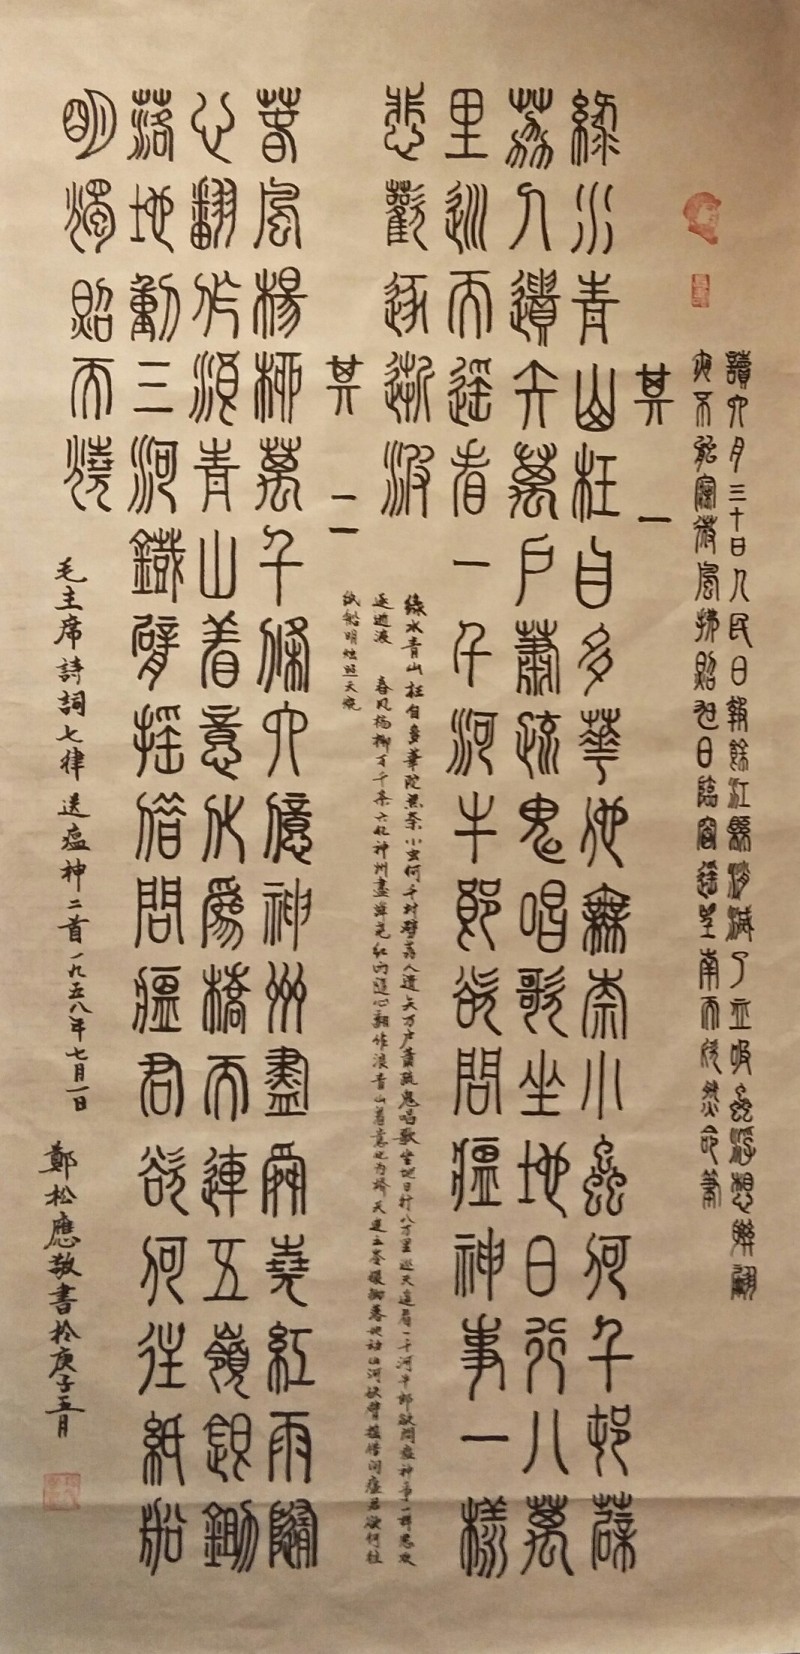 讀六月三十日人民日報餘江縣消滅了血吸蟲浮想聯翩
夜不能寐微風拂煦旭日臨窗遙望南天欣然命筆
其一
綠水青山枉自多華佗無奈小蟲何千村薜
荔人遺矢萬戶蕭疏鬼唱歌坐地日行八萬
里巡天遙看一千河牛郎欲問瘟神事一樣
悲歡逐逝波
绿水青山枉自多華陀無奈小虫何千村薜荔人遺矢万户萧疏鬼唱歌坐地日行八万里巡天遥看一千河牛郎欲問瘟神事一样悲欢
逐逝波 春风杨柳万千条六亿神州盡舜尧红雨随心翻作浪青山着意化为桥天连五岺银锄落地动三河铁臂摇借问瘟君欲何往
纸船明烛照天烧
其二
春風楊柳萬千條六億神州盡舜堯紅雨隨
心翻作浪青山着意化爲橋天連五嶺銀鋤
落地動三河鐵臂搖借問瘟君欲何往紙船
明燭照天燒
毛主席詩詞七律送瘟神二首一九五八年七月一日
鄭松應敬書於庚子五月